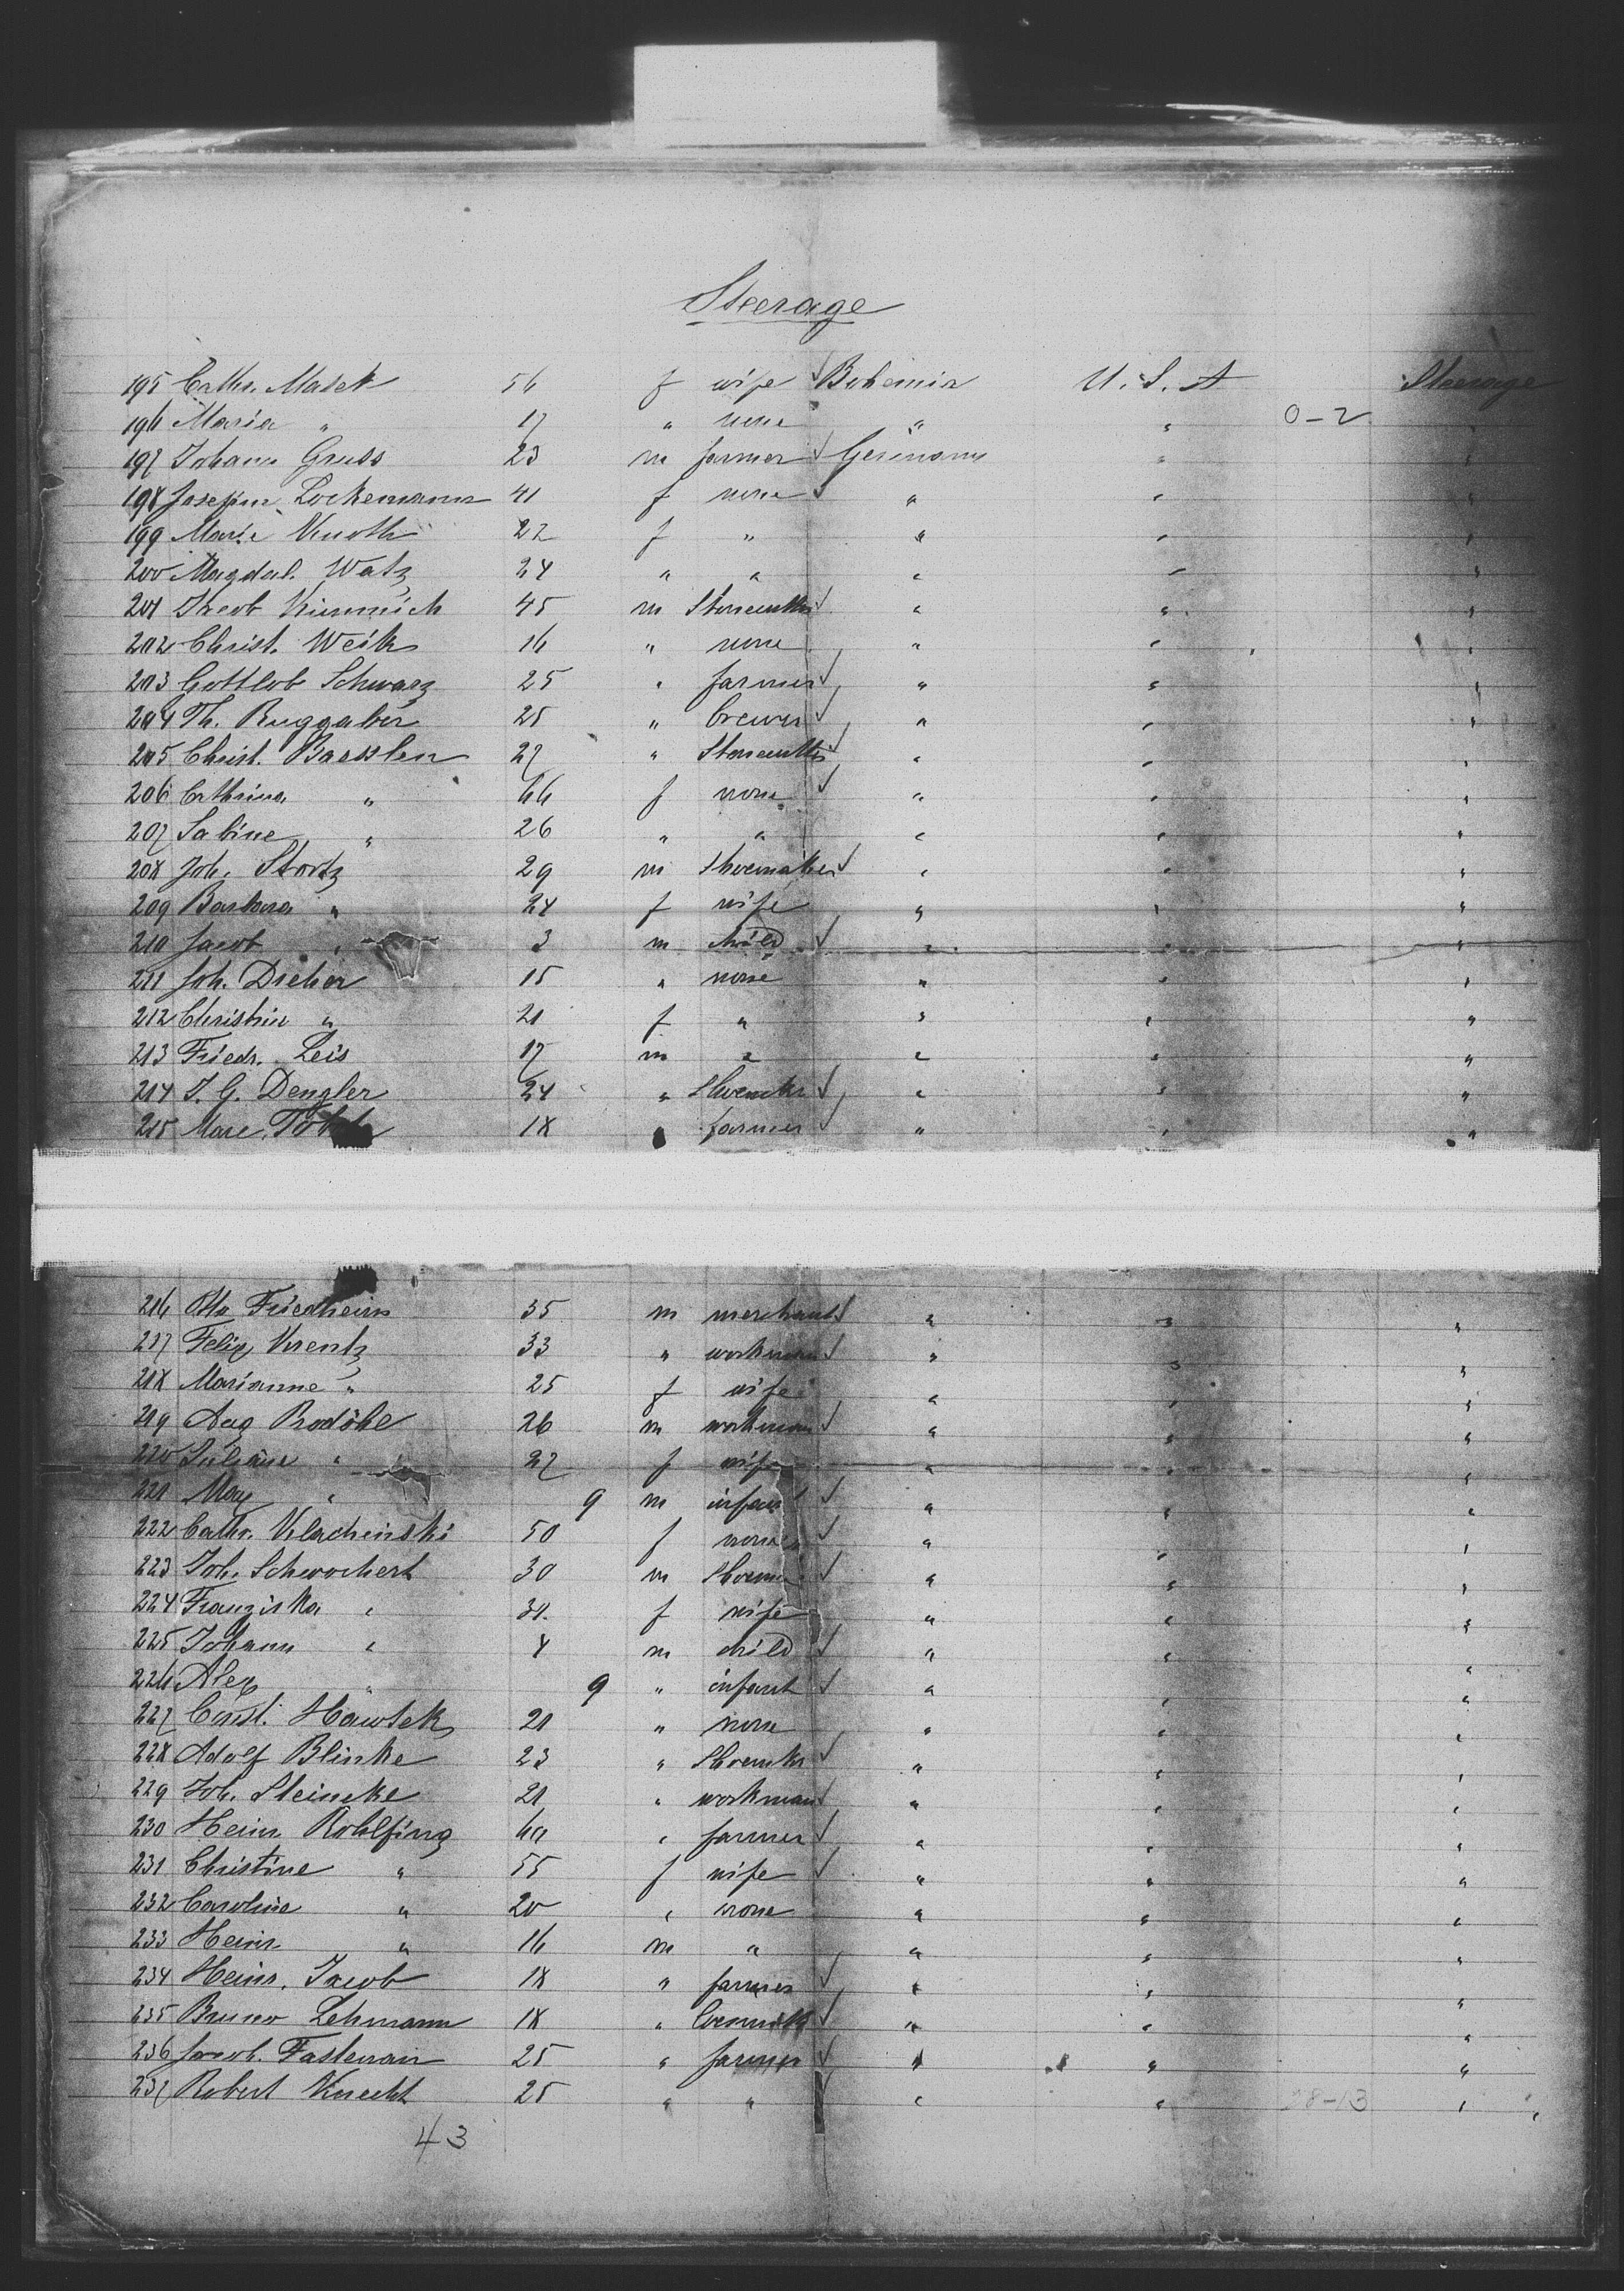 Steerage
195 Cathr. Masek 56 f wife √ Bohemia U. S. A Steerage
196 Maria " 17 " none " " 0-2 "
197 Johann Gruss 23 m farmer √ Germany " "
198 Josephn Lockemann 41 f none √ " " "
199 Marie Knoth 22 f " " " "
200 Magdal. Watz 24 " " " " "
201 Jacob Kimmich 45 m Stonecutter √ " " "
202 Christ. Weik 16 " none " " "
203 Gottlob Schwarz 25 " farmer √ " " "
204 Th. Ruggaber 25 " brewer √ " " "
205 Christ. Baesslen 27 " Stonecutter √ " " "
206 Cathrina " 66 f none √ " " "
207 Sabine " 26 " " " " "
208 Joh. Stortz 29 m Shoemaker √ " " "
209 Barbara " 24 f wife " " "
210 Jacob " 3 m child √ " " "
211 Joh. Dreher 15 " none " " "
212 Christin " 21 f " " " "
213 Friedr. Leis 17 m " " " "
214 J. G. Dengler 24 " Shoemkr √ " " "
215 18 " farmer √ " " "
216 Otto Friedheim 35 m merchant √ " " "
217 Felix Krentz 33 " workman √ " " "
218 Marianne " 25 f wife " " "
219 Aug Prodöhl 26 m workman √ " " "
220 Juliane " 27 f wife " " "
221 Max " 9 m infant √ " " "
222 Cathr. Klachinski 50 f none √ " " "
223 Joh. Schwochert 30 m Shoem √ " " "
224 Franziska " 31 f wife " " "
225 Johann " 4 m child √ " " "
226 Alex " 9 " infant √ " " "
227 Const. Hawlek 21 " none " " "
228 Adolf Blinke 23 " Shoemkr √ " " "
229 Joh. Steincke 21 " workman √ " " "
230 Heinr Rohlfing 60 " farmer √ " " "
231 Christine " 55 f wife √ " " "
232 Caroline " 20 " none " " "
233 Heinr " 16 m " " " "
234 Heinr. Jacob 18 " farmer √ " " "
235 Bruno Lehmann 18 " √ " " "
236 Jacob. Fastenau 25 " farmer √ " " "
237 Robert Knecht 25 " " √ " " 98-13 "
43